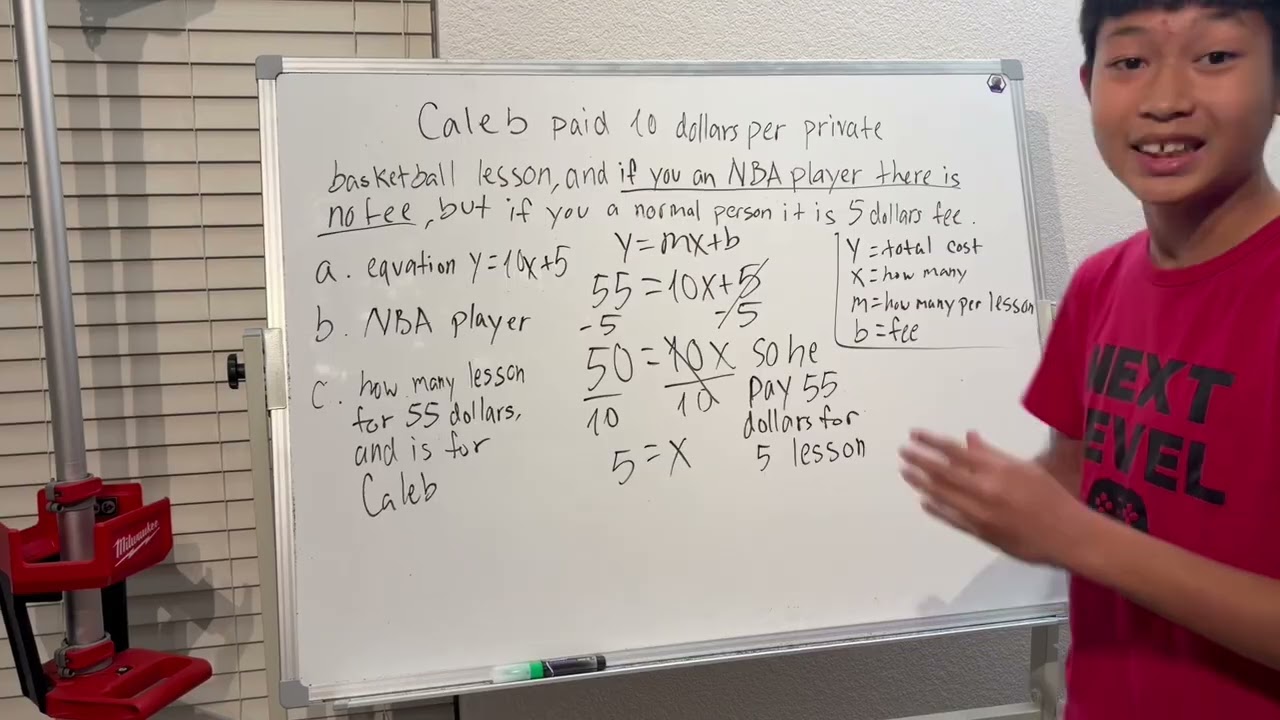 Caleb paid 10 dollars per private
basketball lesson, and if you an NBA player there is
no fee, but if you a normal person it is 5 dollars fee.
a. equation y=10x+5
b. NBA player
c. how many lesson
for 55 dollars,
and is for
Caleb
y=mx+b
55=10x+5
-5 -5
50=10x
10 10
5=x
so he
pay 55
dollars for
5 lesson
y=total cost
x=how many
m=how many per lesson
b=fee
NEXT
LEVEL
Milwaukee